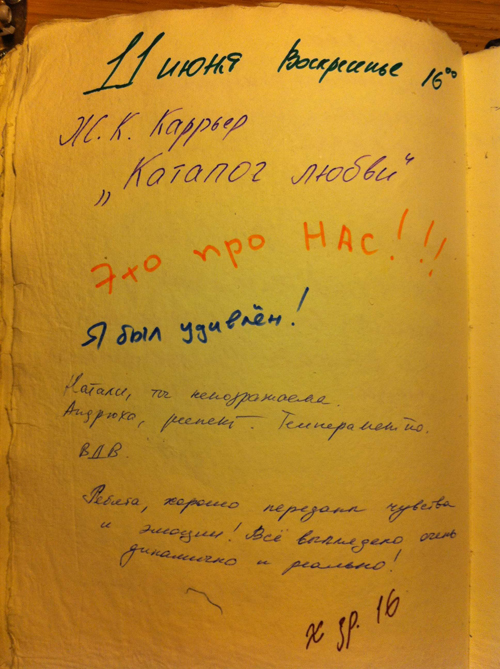 11 июня Воскресенье 16⁰⁰
Ж. К. Каррьер
„Каталог любви"
Эхо про НАС!!!
Я был удивлён!
Натали, ты неподражаема.
Андрюха, респект. Темпераментно.
ВДВ.
Ребята, хорошо переданы чувства
и эмоции! Всё выглядело очень
динамично и реально!
ж зр. 16